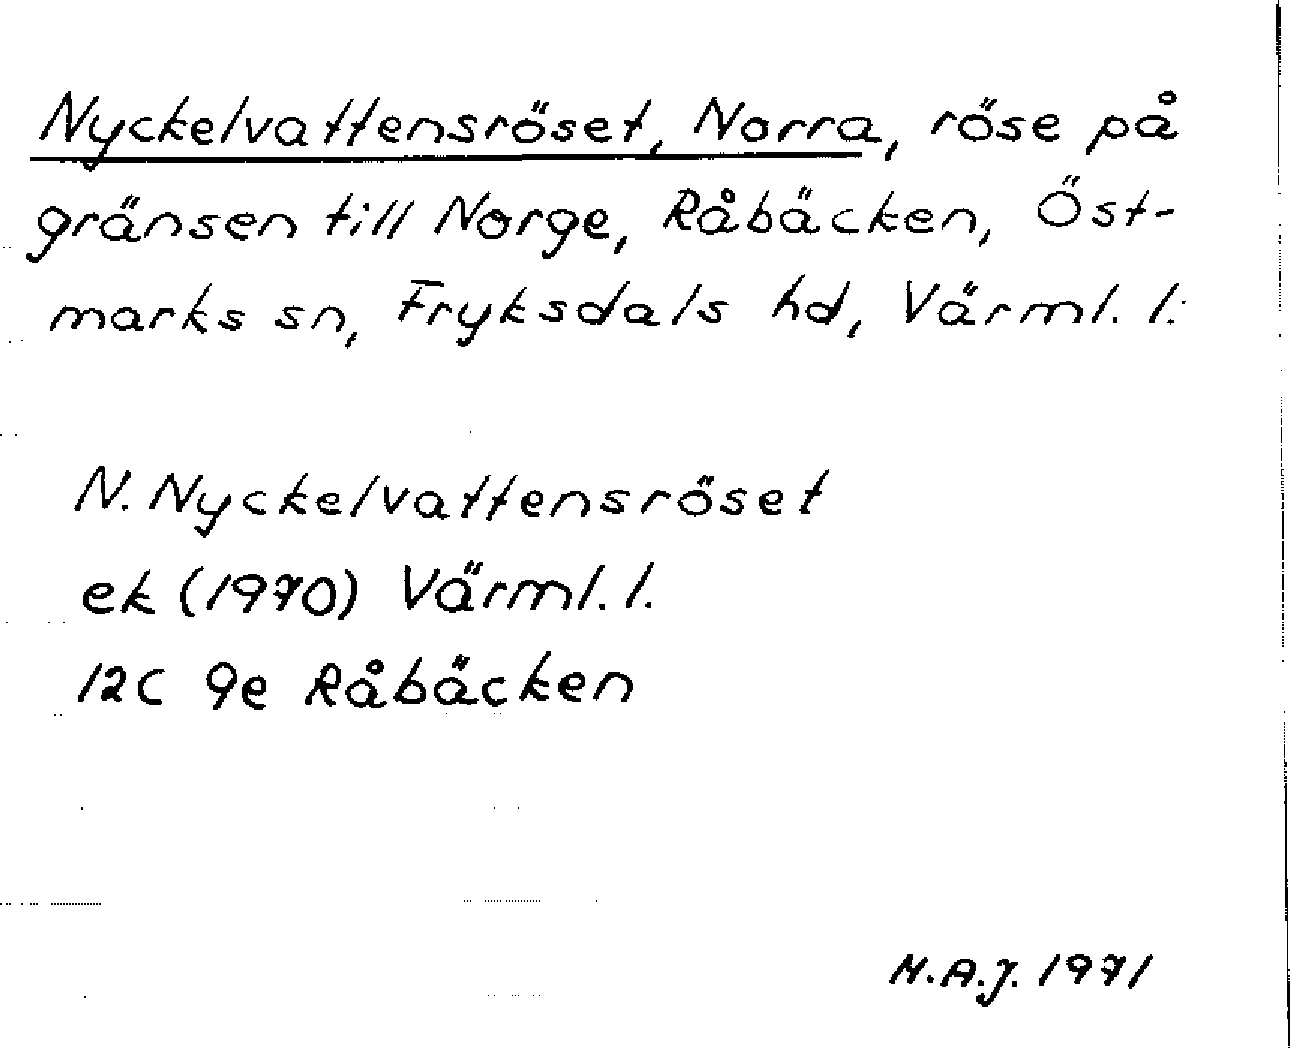 Nyckelvattensröset, Norra, röse på
gränsen till Norge, Råbäcken, Öst-
marks sn, Fryksdals hd, Värml. l.
N. Nyckelvattensröset
ek (1970) Värml. l.
12C 9e Råbäcken
M.A.J. 1971